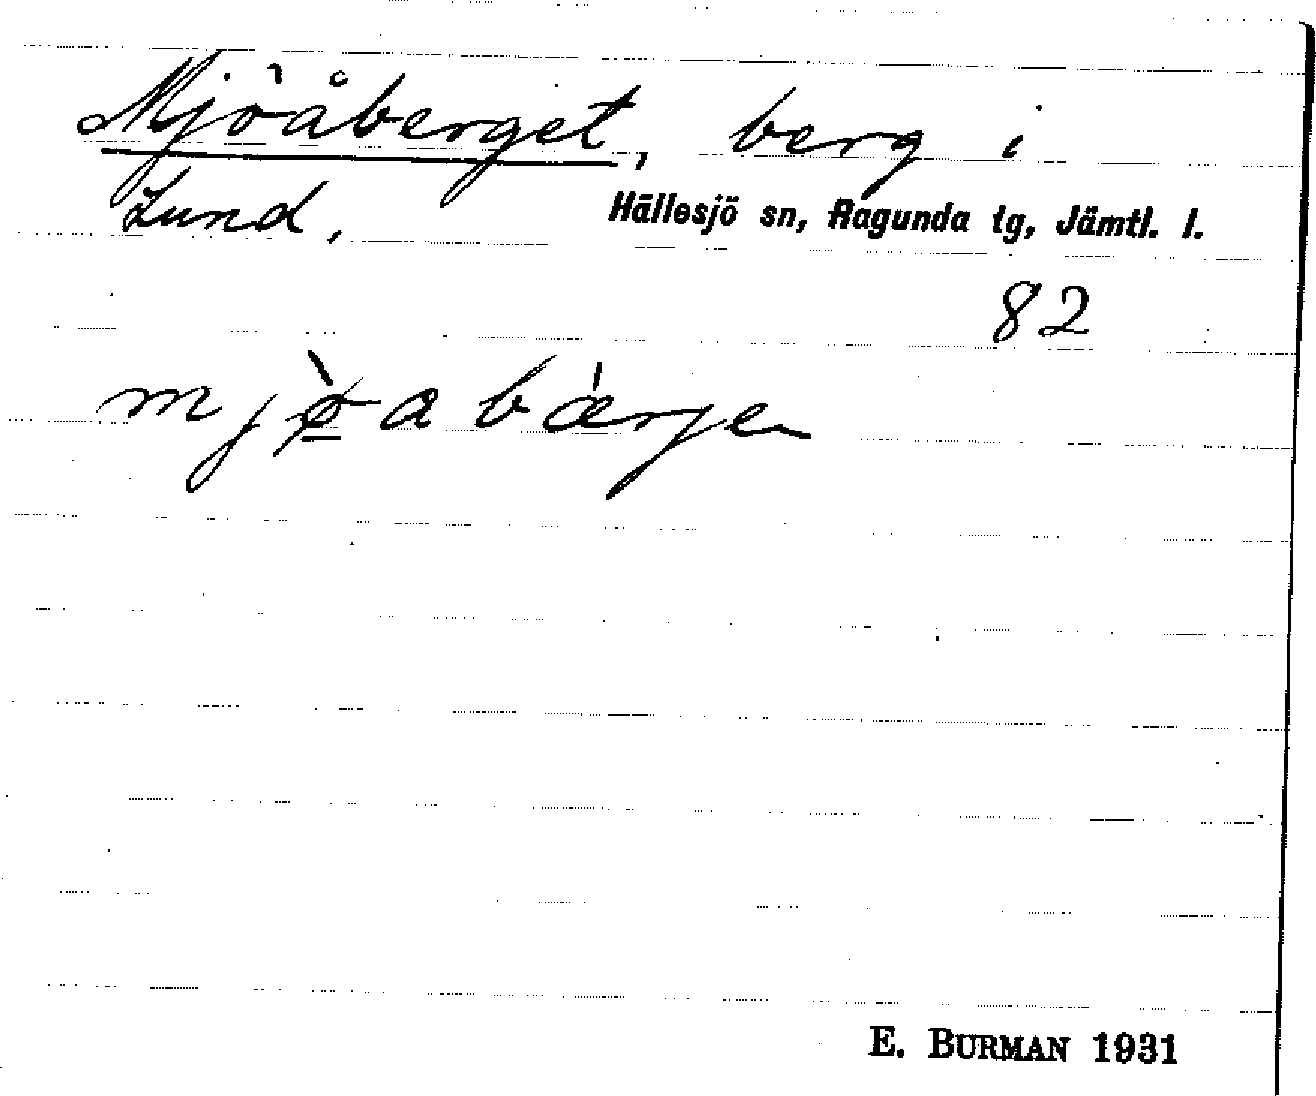 Mjöåberget, berg i
Lund, Hällesjö sn, Ragunda tg, Jämtl. l.
82
mjø̱̀a bǽrjen
E. BURMAN 1931